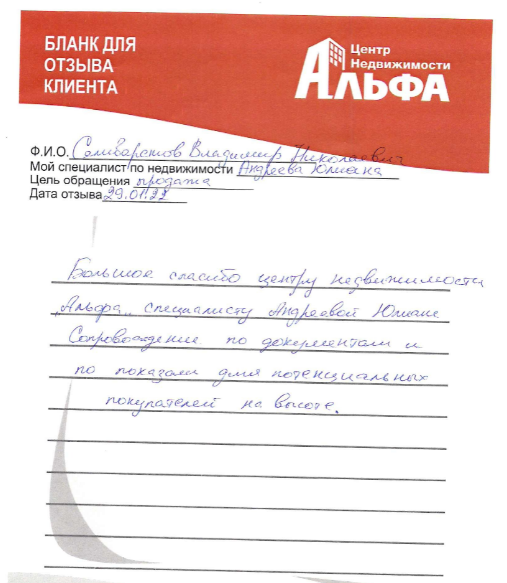 БЛАНК ДЛЯ
ОТЗЫВА
КЛИЕНТА
Центр
Недвижимости
АЛЬФА
Ф.И.О. Селиварстов Владимир Николаевич
Мой специалист по недвижимости Андреева Юлиана
Цель обращения продажа
Дата отзыва 29.01.22
Большое спасибо центру недвижимости
„Альфа„ специалисту Андреевой Юлиане
Сопровождение по документам и
по показам для потенциальных
покупателей на высоте.